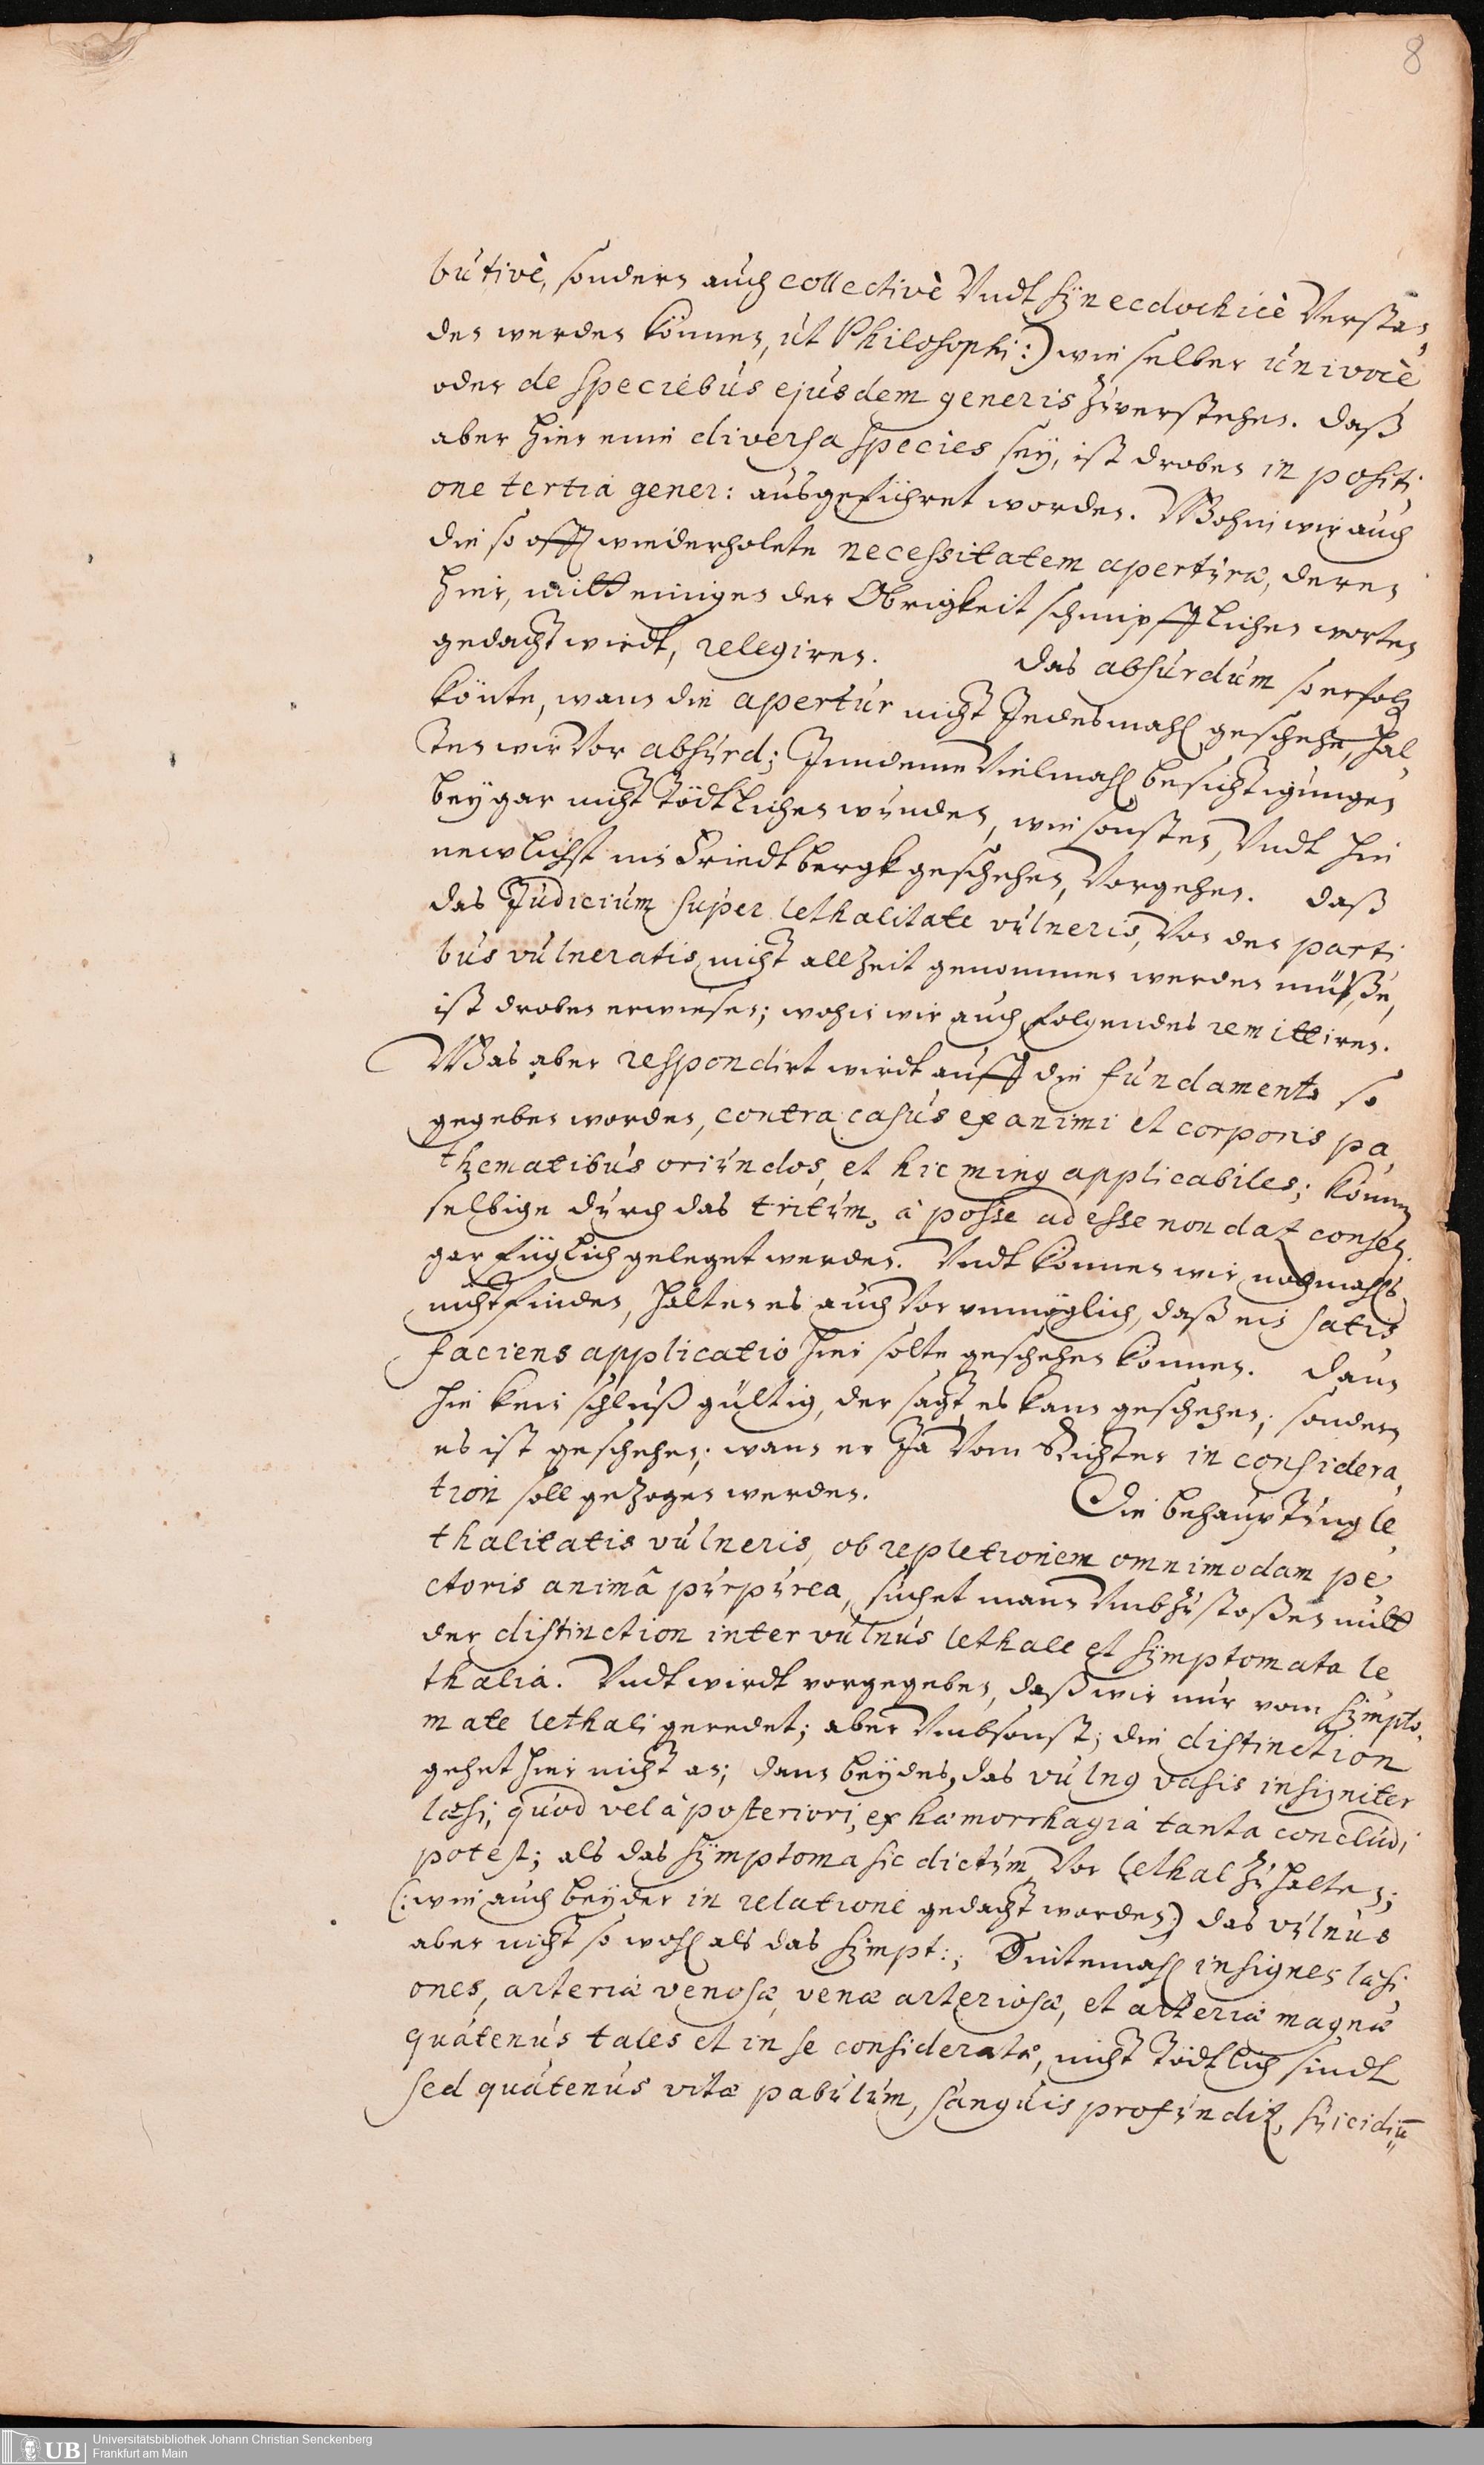 8
butivè, sondern auch collectivè Vndt synecdochicè Verstan,
den werden können, ut Philosophi:) wie selber univocè
oder de speciebus ejusdem generis zuverstehen. daß
aber hier eine diversa species sey, ist droben in positi,
one tertia gener: ausgeführet worden. Wohin wir auch
die so offt wiederholete necessitatem aperturæ, deren
hier, mitt einigen der Obrigkeit schimpfflichen worten
gedacht wirdt, relegiren. das absurdum so erfolg
könte, wann die apertur nicht Jedesmahl geschehe, hal,
ten wir Vor absurd; Inndeme Vielmahl besichtigungen
bey gar nicht tödtlichen wunden, wie sonsten, Vndt hie
newlichst in Friedtbergk geschehen, Vorgehen. daß
das Judicium super lethalitate vulneris, Von den parti
bus vulneratis nicht allzeit genommen werden müsse,
ist droben erwiesen; wohin wir auch folgendes remittiren.
Was aber respondirt wirdt auff die fundamenta so
gegeben worden, contra casus ex animi et corporis pa,
thematibus oriundos, et hic ming applicabiles; könn
selbige durch das tritum, à posse ad esse non dat conseq.
gar füglich geleget werden. Vndt können wir nochmahls
nicht finden, halten es auch Vor vnmöglich, daß ein satis,
faciens applicatio hier solte geschehen können. dann
hie kein schluß gültig, der sagt es kann geschehen; sondern
es ist geschehen; wann er Ja Vom Richter in considera,
tion soll gezogen werden. Die behauptung le,
thalitatis vulneris, ob repletionem omnimodam pe,
ctoris animâ purpurea, suchet mann Vmbzustoßen mitt
der distinction inter vulnus lethale et symptomata le,
thalia. Vndt wirdt vorgegeben, daß wir nur vom sympto,
mate lethali geredet; aber Vmbsonst; die distinction
gehet hier nicht an; dann beydes, das vulng vasis insigniter
læsi; quod vel à posteriori, ex hæmorrhagiâ tanta concludi
potest; als das symptoma sic dictum, Vor lethal zu halten;
(: wie auch beyder in relatione gedacht worden) das vulnus
aber nicht so wohl als das sympt:; Sintemahl insignes læsi
ones, arteriæ venosæ, venæ arteriosæ, et arteriæ magnæ
quatenus tales et in se consideratæ, nicht tödtlich sindt
sed quatenus vitæ pabulum, sanguis profundit, suicidiu
UB Universitätsbibliothek Johann Christian Senckenberg
Frankfurt am Main